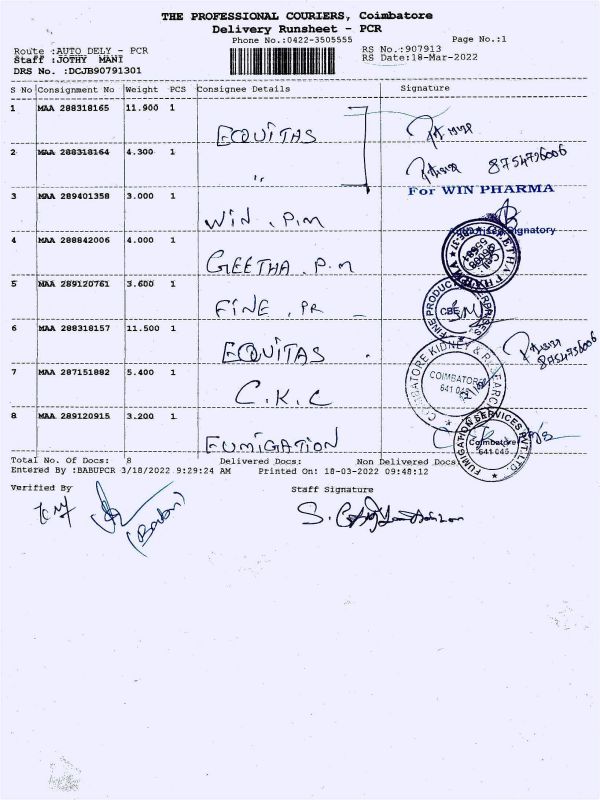 THE PROFESSIONAL COURIERS, Coimbatore
Delivery Runsheet - PCR
Phone No.:0422-3505555
Page No.:1
Route :AUTO DELY - PCR
RS No.:907913
Staff :JOTHY MANI
RS Date:18-Mar-2022
DRS No. :DCJB90791301
S No Consignment No Weight PCS Consignee Details Signature
1 MAA 288318165 11.900 1
EQUITAS
2 MAA 288318164 4.300 1
8754756006
"
For WIN PHARMA
3 MAA 289401358 3.000 1
WIN . P.M
Signatory
4 MAA 288842006 4.000 1
GEETHA . P.M
GEETHA PHARMA
5 MAA 289120761 3.600 1
FINE . PR
FINE PRODUCT
CBE
6 MAA 288318157 11.500 1
EQUITAS
8754756006
7 MAA 287151882 5.400 1
C.K.C
COIMBATORE KIDNEY &
COIMBATORE
641 045
8 MAA 289120915 3.200 1
FUMIGATION
FUMIGATION SERVICES PVT. LTD.
Coimbatore
641 045
Total No. Of Docs: 8 Delivered Docs: Non Delivered Docs
Entered By :BABUPCR 3/18/2022 9:29:24 AM Printed On: 18-03-2022 09:48:12
Verified By
Staff Signature
(Babu)